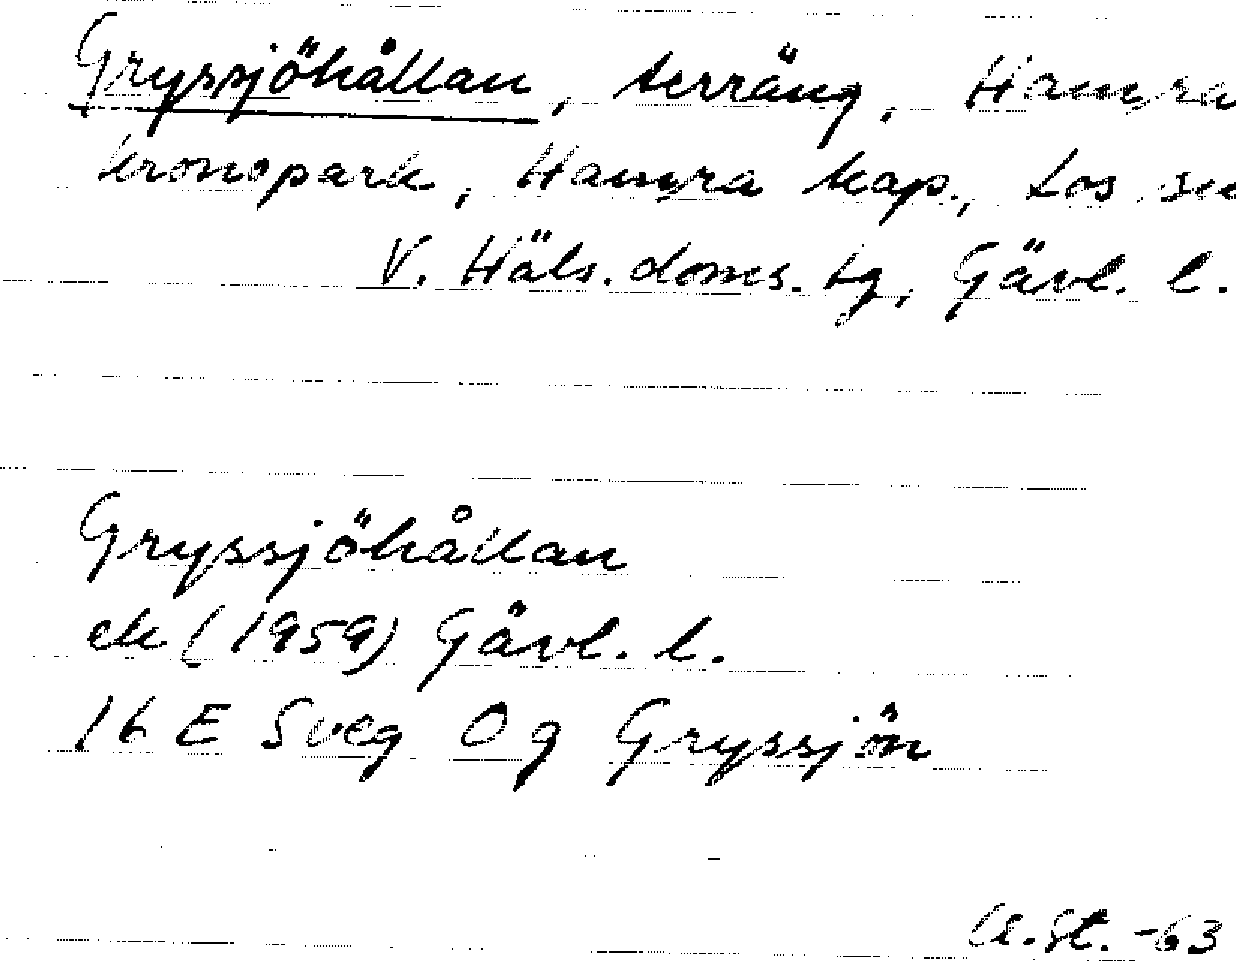 Gryssjöhållan, terräng, Hamra
kronopark, Hamra kap., Los sn
V. Häls. doms. tg, Gävl. l.
Gryssjöhållan
ek (1959) Gävl. l.
16 E Sveg Og Gryssjön
St. -63